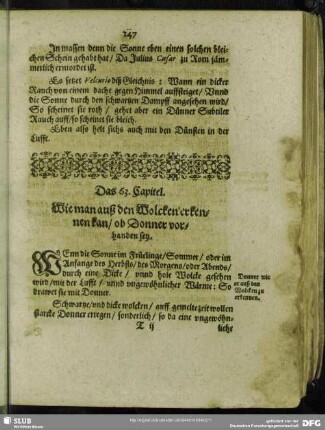 247
In massen denn die Sonne eben einen solchen blei-
chen Schein gehabt hat / Da Julius Cæsar zu Rom jäm-
merlich ermordet ist.
Es setzt Velcurio diß Gleichnis: Wann ein dicker
Rauch von einem dache gegen Himmel auffsteiget / Vnnd
die Sonne durch den schwartzen Dampff angesehen wird /
So scheinet sie roth / gehet aber ein Dünner Subtiler
Rauch auff / so scheinet sie bleich.
Eben also helt sichs auch mit den Dünsten in der
Lufft.
Das 63. Capitel.
Wie man auß den Wolcken erken-
nen kan / ob Donner vor-
handen sey.
WEnn die Sonne im Früelinge / Sommer / oder im
Anfange des Herbsts / des Morgens / oder Abends /
durch eine Dicke / vnnd hole Wolcke gesehen
wird / mit der Lufft / vnnd vngewöhnlicher Wärme: So
drawet sie mit Donner.
Donner wie
er auß den
Wolcken zu
erkennen.
Schwartze / vnd dicke wolcken / auff gewelte zeit wollen
starcke Donner erregen / sonderlich / so da eine vngewöhn-
T ij
liche
SLUB
Wir führen Wissen.
gefördert von der
Deutschen Forschungsgemeinschaft
DFG